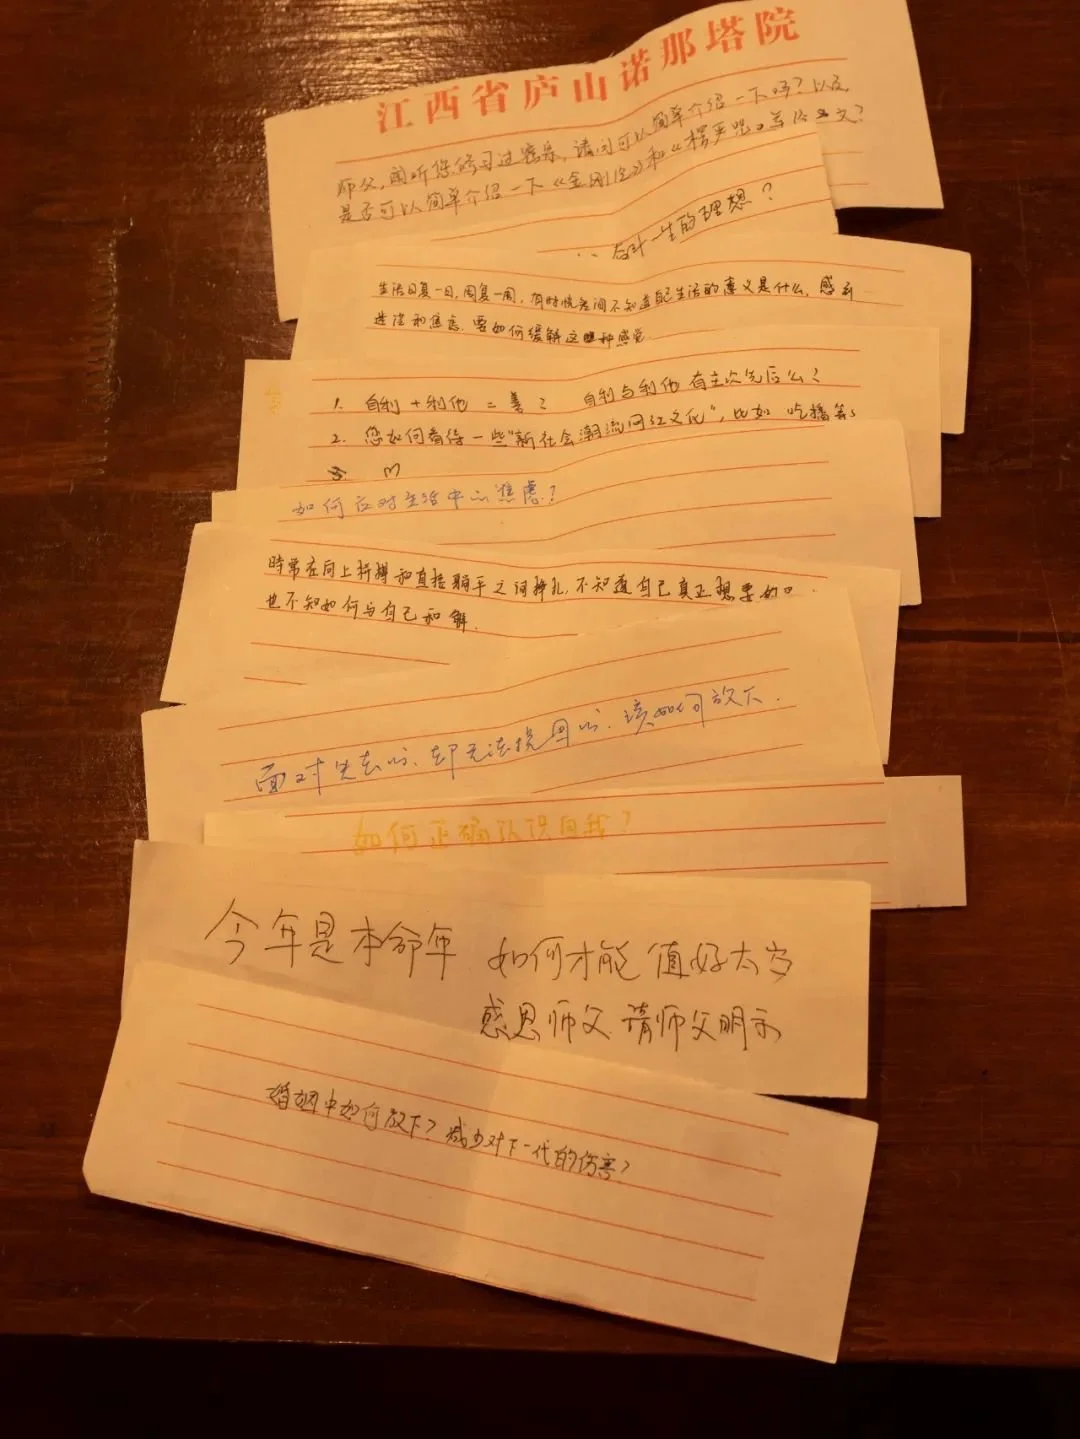 江西省庐山诺那塔院
师父,闻听您修习过密宗,请问可以简单介绍一下吗?以及
是否可以简单介绍一下《金刚经》和《楞严咒》等经文?
一生的理想?
生活日复一日,周复一周,有时恍惚间不知道自己生活的意义是什么,感到
迷茫和焦虑,要如何缓解这种感觉
1. 自利+利他=善? 自利与利他有主次先后么?
2. 您如何看待一些"新社会潮流网红文化",比如 吃播等
如何应对生活中的焦虑?
時常在向上拼搏和直接躺平之间挣扎,不知道自己真正想要的。
也不知如何与自己和解.
面对失去的,却无法挽回的,该如何放下.
如何正确认识自我?
今年是本命年 如何才能值好太岁
感恩师父 请师父明示
婚姻中如何放下?减少对下一代的伤害?